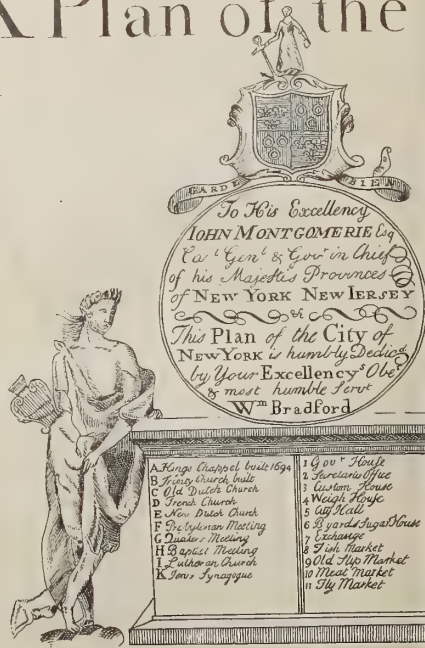 A Plan of the
GARDE BIEN
To His Excellency
IOHN MONTGOMERIE Esqr
Capt Genl & Govr in Chief
of his Majesties Provinces
of NEW YORK NEW IERSEY
&c
This Plan of the City of
NEW YORK is humbly Dedicd
by Your Excellencys Obet
& most humble Servt
Wm Bradford
A Kings Chappel built 1694
B Trinity Church built
C Old Dutch Church
D French Church
E New Dutch Church
F Presbyterian Meeting
G Quakers Meeting
H Baptist Meeting
I Lutheran Church
K Jews Synagogue
1 Govr House
2 Secretaries Office
3 Custom House
4 Weigh House
5 City Hall
6 Byards Sugar House
7 Exchange
8 Fish Market
9 Old Slip Market
10 Meat Market
11 Fly Market